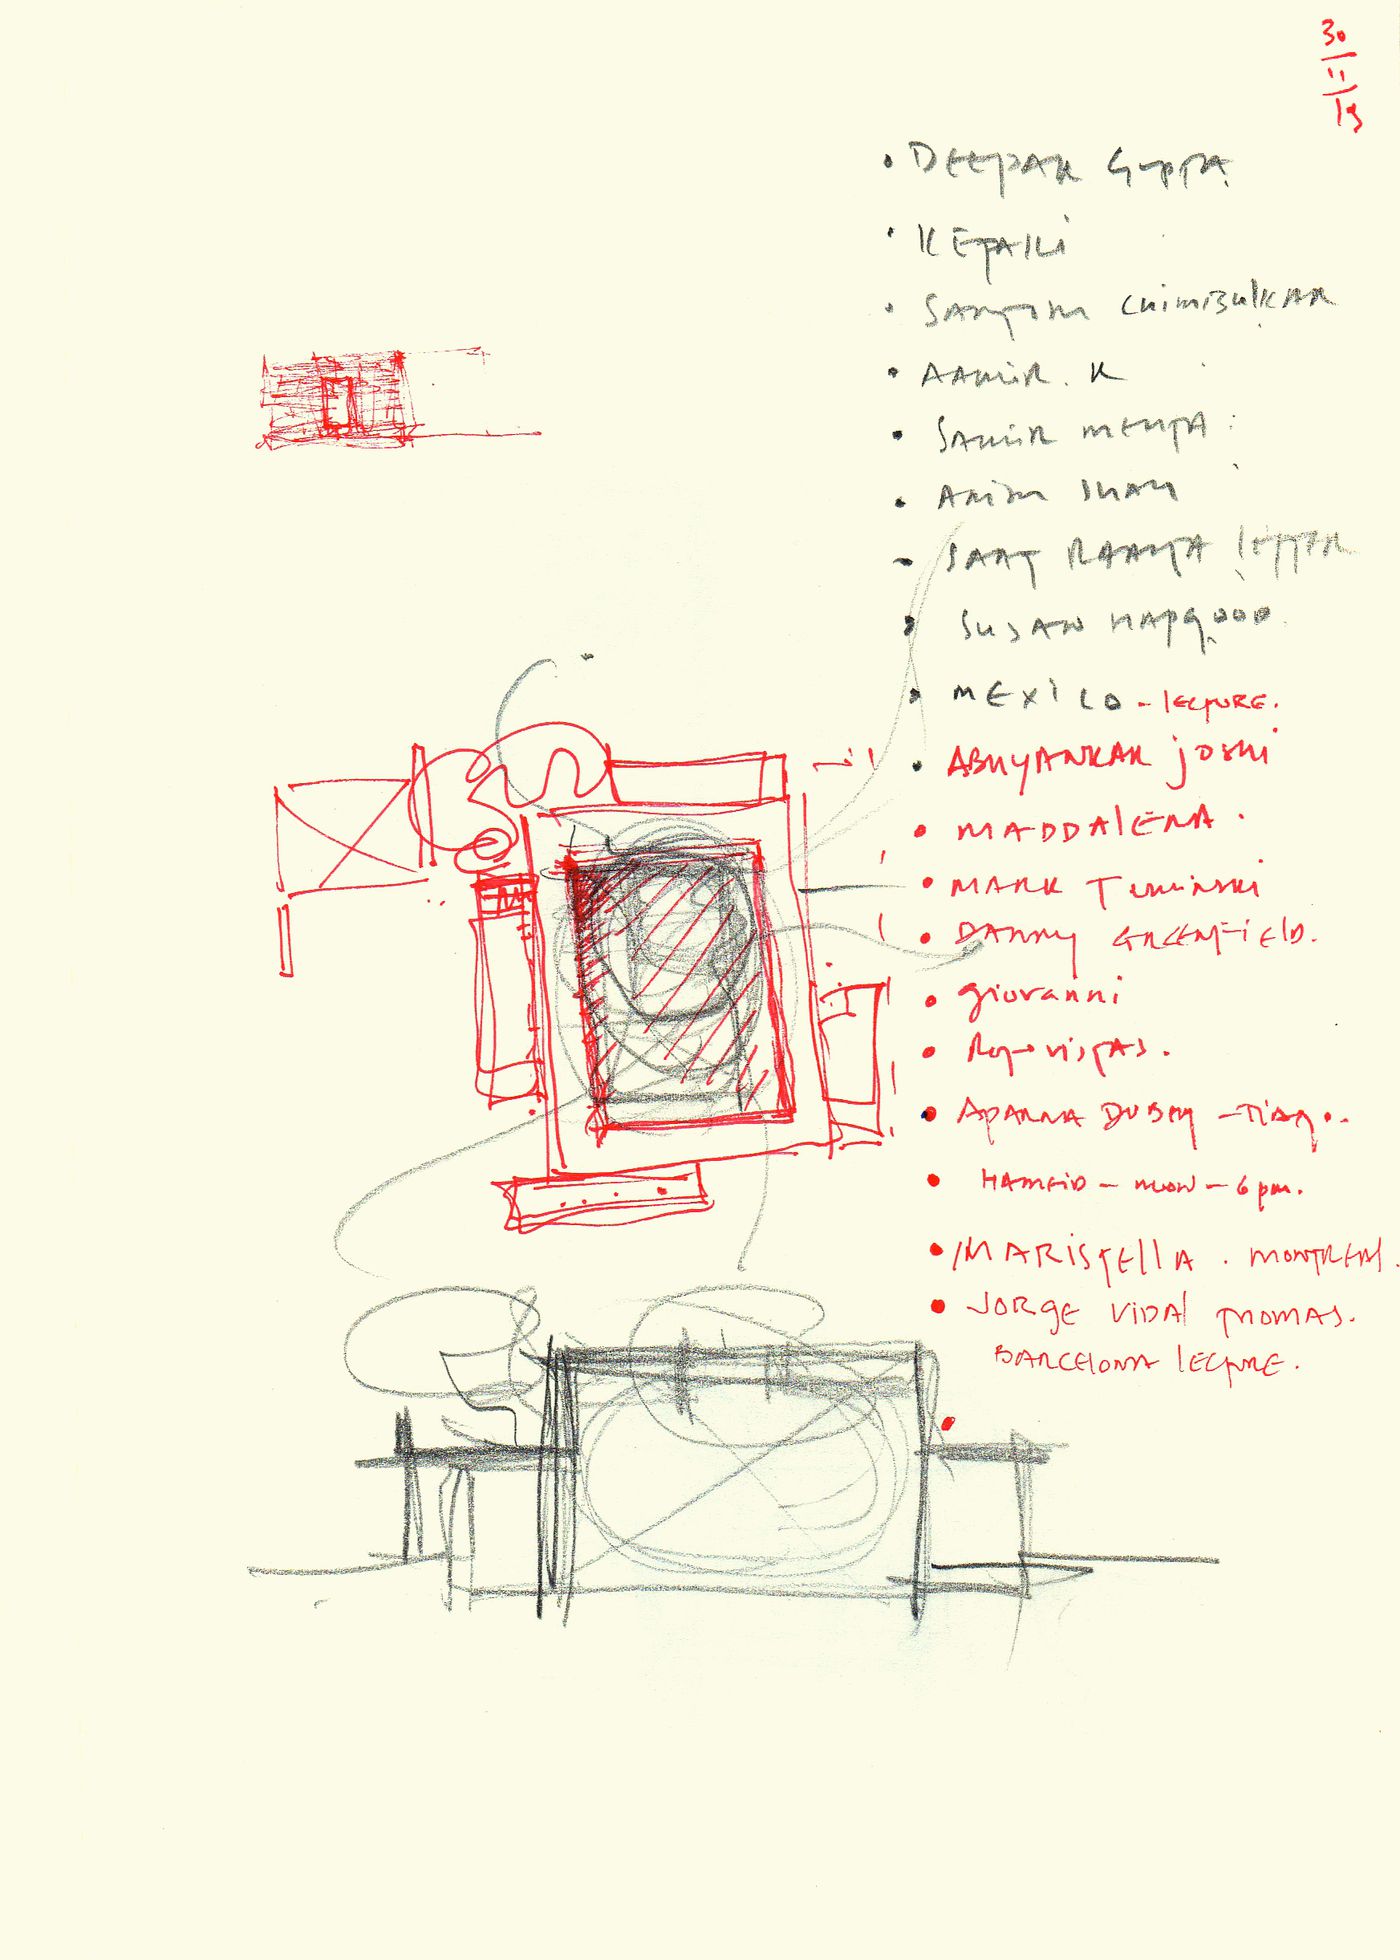 30
11
19
• DEEPAK GUPTA
• KETAKI
• CHIMBULKAR
• AAMIR. K
• SAMIR MEHTA
• SHAH
• SAAT RAASTA LETTER
• SUSAN HAPGOOD
• MEXICO - LECTURE.
• ABHYANKAR JOSHI
• MADDALENA.
• MARK
• DANNY GREENFIELD.
• GIOVANNI
• APARNA DUBEY
• HAMEID - MON - 6 pm.
• MARISTELLA . MONTREAL.
• JORGE VIDAL THOMAS.
BARCELONA LECTURE.